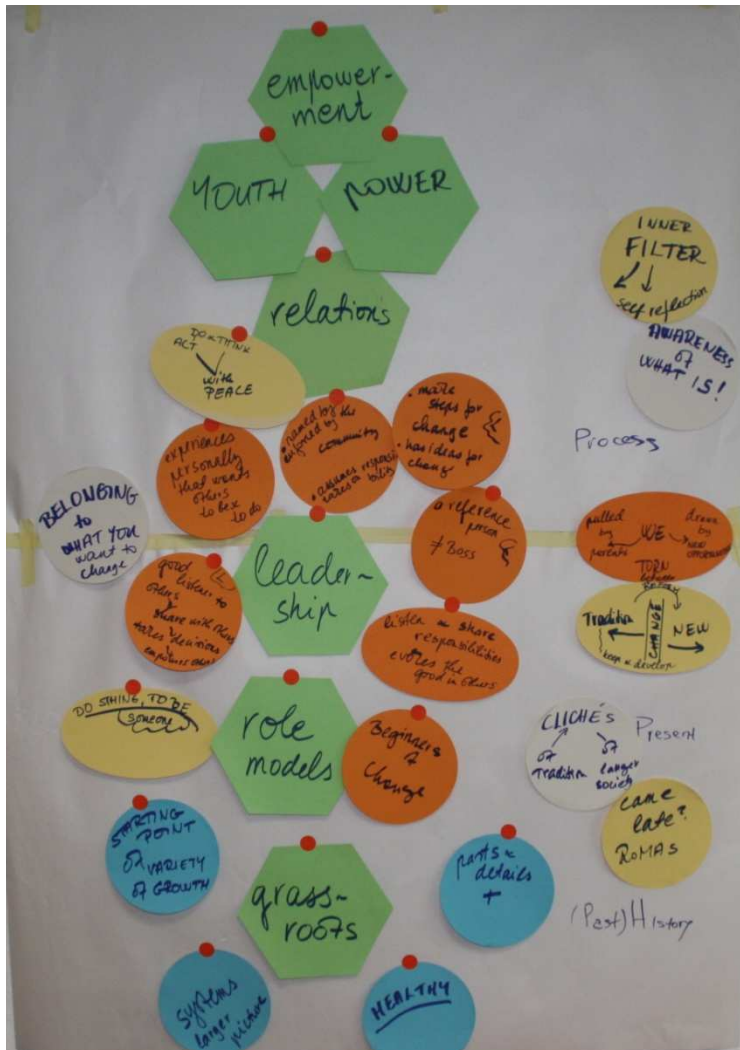 empower-
ment
YOUTH
POWER
relations
INNER
FILTER
self reflection
AWARENESS
of
WHAT IS!
DO THINK
ACT
with
PEACE
experiences
personally
that wants
others
to be
to do
• named by
by the
community
• assumes responsi
bility
• make
steps for
change
• has ideas for
change
Process
BELONGING
to
WHAT YOU
want to
change
a reference
person
≠ Boss
pulled
by
parents
WE
drawn
by
new
TORN
good
listener to
others
share with others
takes decisions
empowers others
leader-
ship
listen & share
responsibilities
evokes the
good in others
Tradition
CHANGE
NEW
keep & develop
DO STHING, TO BE
someone
role
models
Beginners
of
change
CLICHÉS
of
Tradition
of
larger
society
Present
came
late?
ROMAS
STARTING
POINT
of VARIETY
of GROWTH
grass-
roots
parts &
details
+
(Past) History
systems
larger
picture
HEALTHY